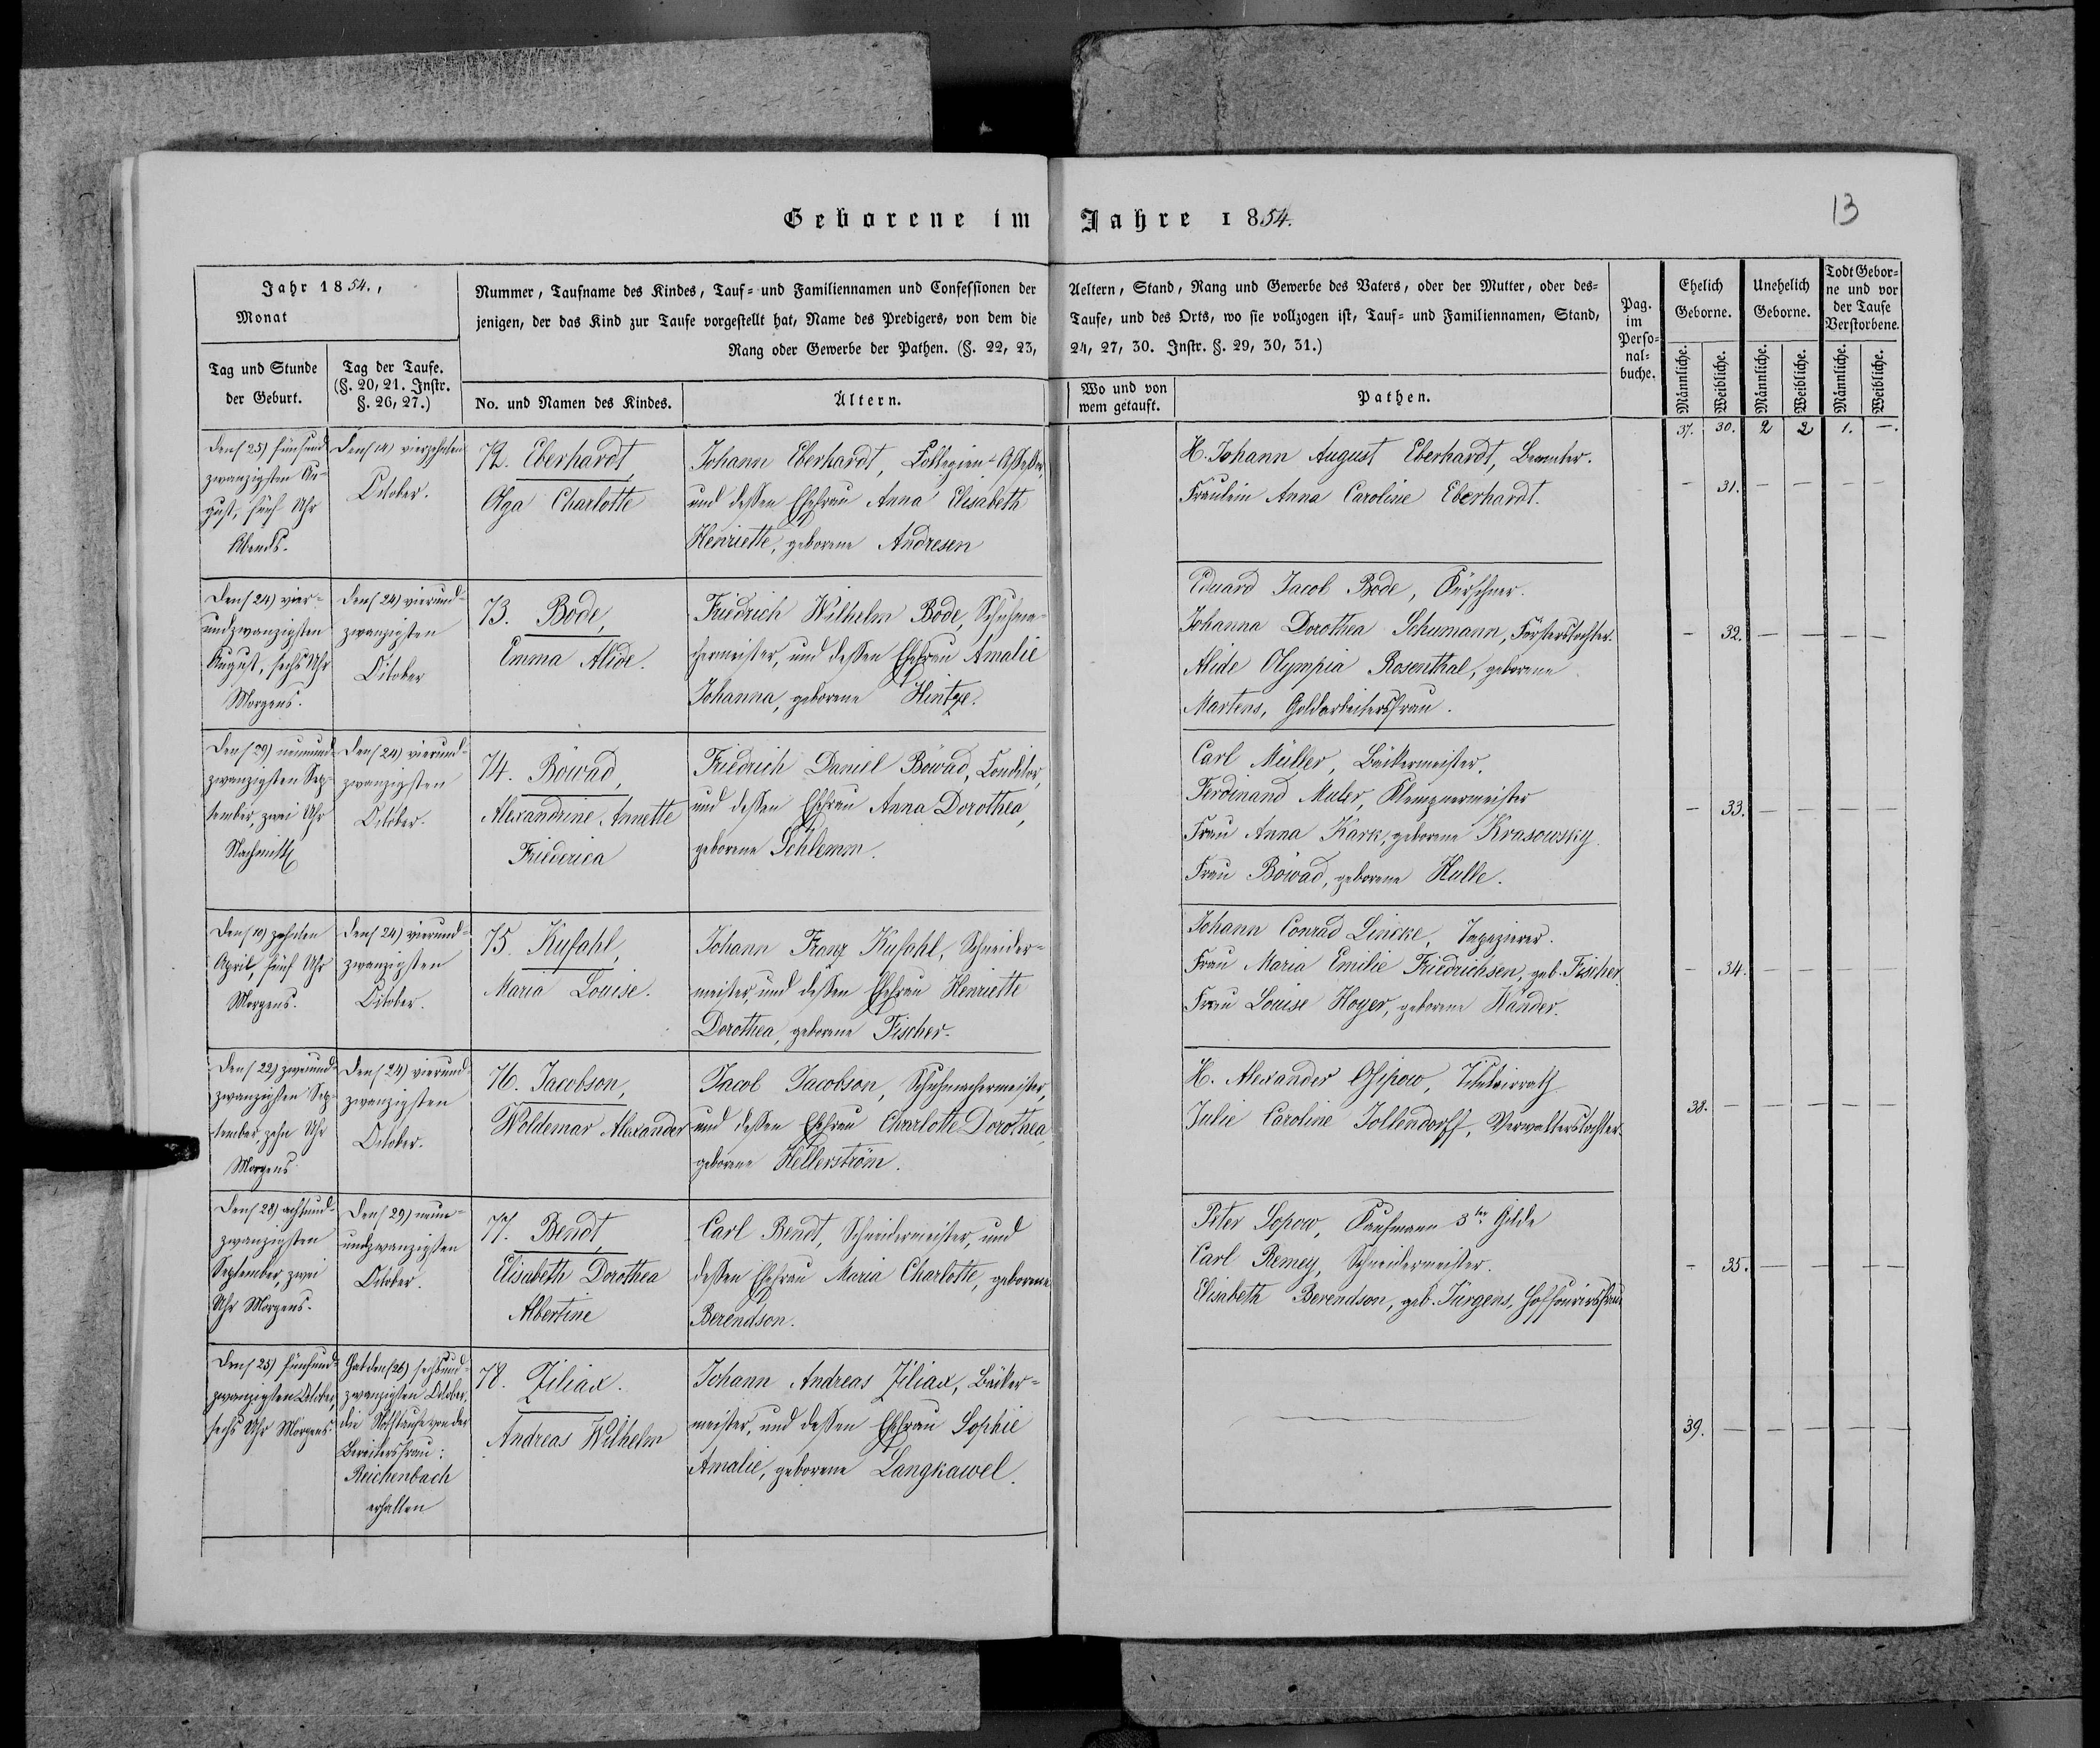 Geborene im Jahre 1854.
13
Jahr 1854.,
Monat
Nummer, Taufname des Kindes, Tauf- und Familiennamen und Confessionen der Aeltern, Stand, Rang und Gewerbe des Vaters, oder der Mutter, oder des-
jenigen, der das Kind zur Taufe vorgestellt hat, Name des Predigers, von dem die Taufe, und des Orts, wo sie vollzogen ist, Tauf- und Familiennamen, Stand,
Rang oder Gewerbe der Pathen. (§. 22, 23, 24, 27, 30. Instr. §. 29, 30, 31.)
Tag und Stunde
der Geburt.
Tag der Taufe.
(§. 20, 21. Instr.
§. 26, 27.)
No. und Namen des Kindes.
Ältern.
Wo und von
wem getauft.
Pathen.
Pag.
im
Perso-
nal-
buche.
Ehelich
Geborne.
Unehelich
Geborne.
Todt Gebor-
ne und vor
der Taufe
Verstorbene.
Männliche.
Weibliche.
Männliche.
Weibliche.
Männliche.
Weibliche.
37. 30. 2 2 1. –.
Den (25) fünfund
zwanzigsten Au-
gust, fünf Uhr
Abends.
Den (14) vierzehnten
October.
72. Eberhardt
Olga Charlotte
Johann Eberhardt, Collegien-Assessor,
und dessen Ehefrau Anna Elisabeth
Henriette, geborene Andresen
H. Johann August Eberhardt, Beamter.
Fräulein Anna Caroline Eberhardt.
– 31. – – – –
Den (24) vier-
undzwanzigsten
August, sechs Uhr
Morgens.
Den (24) vierund-
zwanzigsten
October
73. Bode,
Emma Alide.
Friedrich Wilhelm Bode, Schuhma-
chermeister, und dessen Ehefrau Amalie
Johanna, geborene Hintze.
Eduard Jacob Bode, Kürschner.
Johanna Dorothea Schumann, Försterstochter.
Alide Olympia Rosenthal, geborene
Martens, Goldarbeitersfrau.
– 32. – – – –
Den (29) neunund-
zwanzigsten Sep-
tember, zwei Uhr
Nachmitt
Den (24) vierund-
zwanzigsten
October.
74. Böwad,
Alexandrine Annette
Friederica
Friedrich Daniel Böwad, Conditor,
und dessen Ehefrau Anna Dorothea,
geborene Schlemm.
Carl Müller, Bäckermeister,
Ferdinand Muler, Klempnermeister
Frau Anna Kark, geborene Krasowsky
Frau Böwad, geborene Hulle.
– 33. – – – –
Den (10) zehnten
April, fünf Uhr
Morgens.
Den (24) vierund-
zwanzigsten
October.
75. Kufahl,
Maria Louise.
Johann Franz Kufahl, Schneider-
meister, und dessen Ehefrau Henriette
Dorothea, geborene Fischer.
Johann Conrad Lincke, Tapezierer.
Frau Maria Emilie Friedrichsen, geb. Fischer
Frau Louise Hoyer, geborene Wänder.
– 34. – – – –
Den (22) zweiund-
zwanzigsten Sep-
tember, zehn Uhr
Morgens
Den (24) vierund-
zwanzigsten
October.
76. Jacobson,
Woldemar Alexander
Jacob Jacobson, Schuhmachermeister,
und dessen Ehefrau Charlotte Dorothea,
geborene Hellerström.
H. Alexander Ossipow, Titulairrath
Julie Caroline Jollendorff, Verwalterstochter.
38. – – – – –
Den (28) achtund-
zwanzigsten
September, zwei
Uhr Morgens.
Den (29) neun-
undzwanzigsten
October.
77. Bendt,
Elisabeth Dorothea
Albertine
Carl Bendt, Schneidermeister, und
dessen Ehefrau Maria Charlotte, geborene
Berendson.
Peter Popow, Kaufmann 3ter Gilde
Carl Remey, Schneidermeister.
Elisabeth Berendson, geb. Jürgens, Hoffouriersfrau
– 35. – – – –
Den (25) fünfund-
zwanzigsten October,
sechs Uhr Morgens.
Hat den (26) sechsund-
zwanzigsten October,
die Nothtaufe von der
Bereitersfrau:
Reichenbach
erhalten
78. Ziliax.
Andreas Wilhelm
Johann Andreas Ziliax, Bäcker-
meister, und dessen Ehefrau Sophie
Amalie, geborene Langkawel.
39. – – – – –